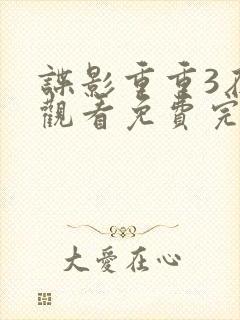 諜影重重3
觀看免費完
大愛在心